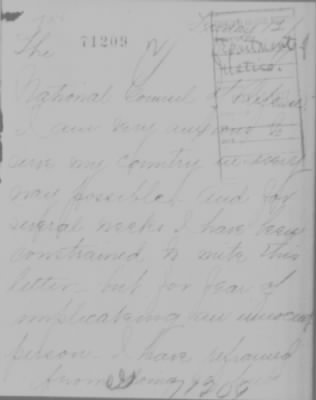 71209
The
Department of
Justice.
National Council of Defense
I am very anxious to
serve my country in every
way possible, and for
several weeks I have been
constrained to write this
letter but for fear of
implicating an innocent
person I have refrained
from doing so